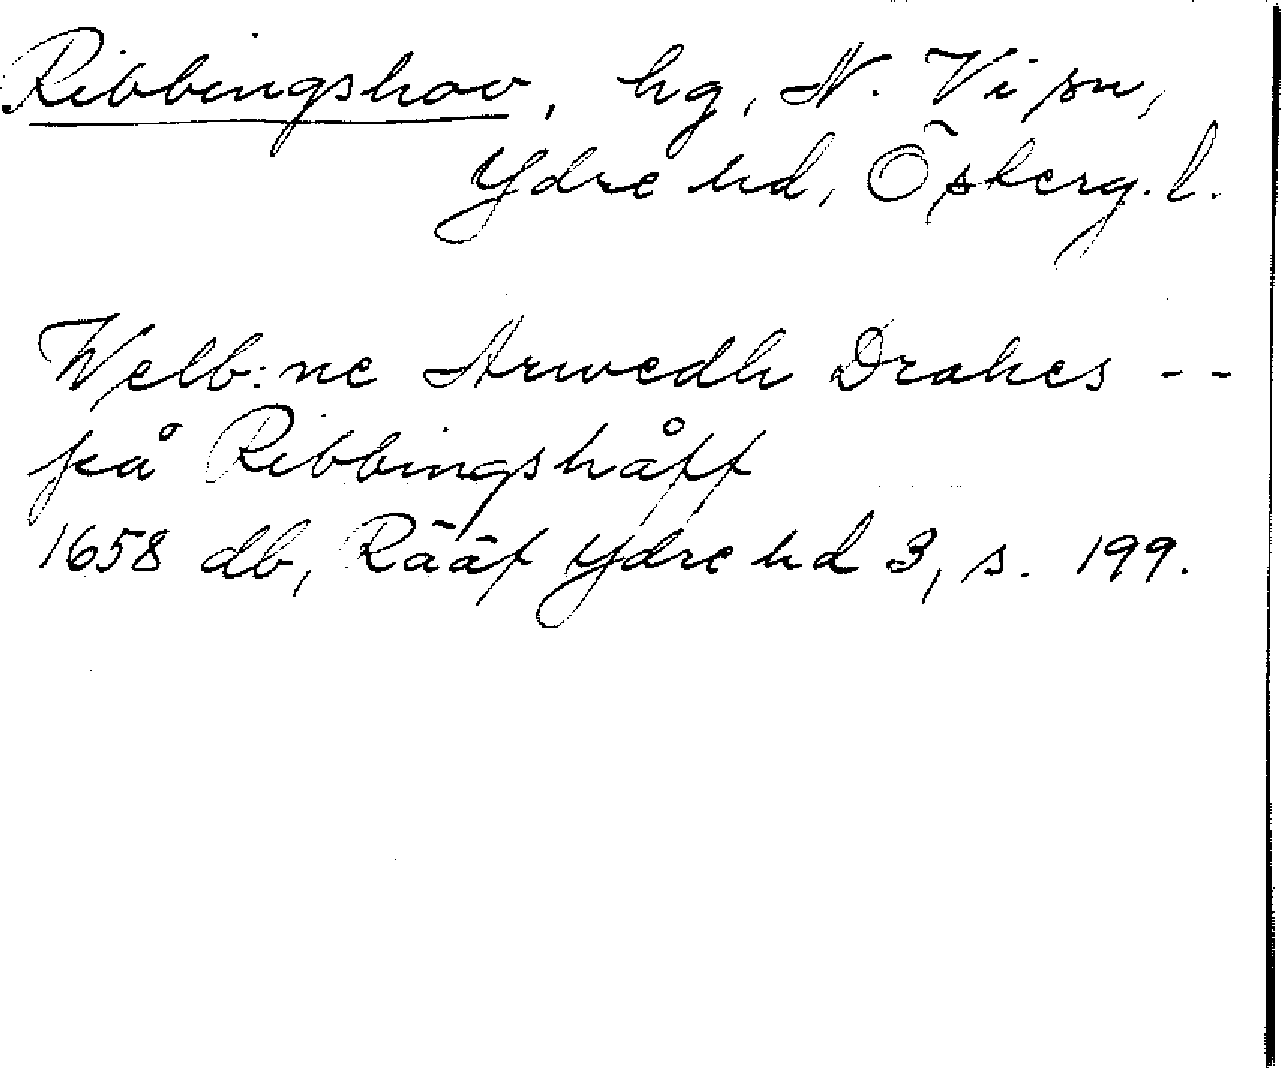 Ribbingshov, hg, N. Vi sn,
Ydre hd, Östergl.
Welb:ne Arwedh Drakes --
på Ribbingshåff
1658 db, Rääf Ydre hd 3, s. 199.